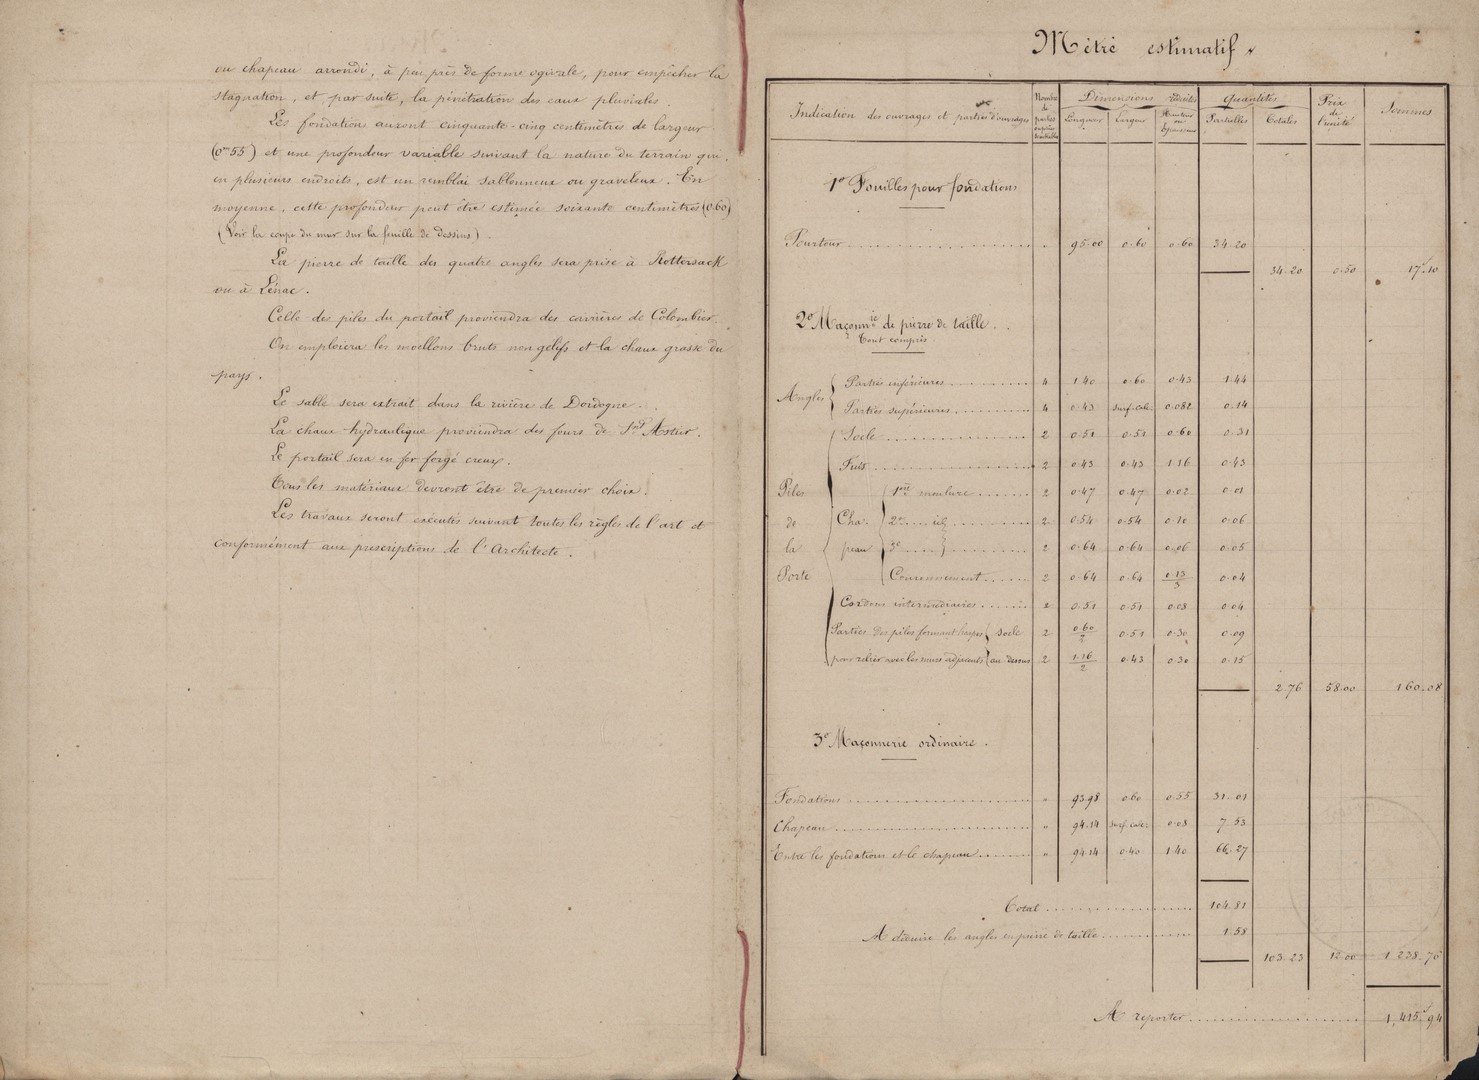 ou chapeau arrondi, à peu près de forme ogivale, pour empêcher la
stagnation, et par suite, la pénétration des eaux pluviales.
Les fondations auront cinquante-cinq centimètres de largeur
(0m55) et une profondeur variable suivant la nature du terrain qui,
en plusieurs endroits, est un remblai sablonneux ou graveleux. En
moyenne, cette profondeur peut être estimée soixante centimètres (0.60)
(Voir la coupe du mur sur la feuille de dessins).
La pierre de taille des quatre angles sera prise à Rottersack
ou à Lénac.
Celle des piles du portail proviendra des carrières de Colombier.
On emploiera les moellons bruts non gélifs et la chaux grasse du
pays.
Le sable sera extrait dans la rivière de Dordogne.
La chaux hydraulique proviendra des fours de St Astier.
Le portail sera en fer forgé creux.
Tous les matériaux devront être de premier choix.
Les travaux seront exécutés suivant toutes les règles de l'art et
conformément aux prescriptions de l'Architecte.
Métré estimatif
Indication des ouvrages et parties d'ouvrages Nombre de parties Dimensions réduites Quantités Prix de l'unité Sommes
Longueur Largeur Hauteur ou Epaisseur Partielles Totales
1o Fouilles pour fondations
Pourtour " 95.00 0.60 0.60 34.20
34.20 0.50 17f.10
2o Maçonnie de pierre de taille.
Tout compris
Angles Parties inférieures 4 1.40 0.60 0.43 1.44
Parties supérieures 4 0.43 surf. calc: 0.082 0.14
Piles de la Porte Socle 2 0.51 0.51 0.60 0.31
Fûts 2 0.43 0.43 1.16 0.43
Chapeau 1ère moulure 2 0.47 0.47 0.02 0.01
2e id 2 0.54 0.54 0.10 0.06
3e 2 0.64 0.64 0.06 0.05
Couronnement 2 0.64 0.64 0.13/3 0.04
Cordons intermédiaires 2 0.51 0.51 0.08 0.04
Parties des piles formant harpes socle 2 0.60/2 0.51 0.30 0.09
pour relier avec les murs adjacents au-dessus 2 1.16/2 0.43 0.30 0.15
2.76 58.00 160.08
3o Maçonnerie ordinaire.
Fondations " 93.98 0.60 0.55 31.01
Chapeau " 94.14 surf. calc: 0.08 7.53
Entre les fondations et le chapeau " 94.14 0.40 1.40 66.27
Total 104.81
A déduire les angles en pierre de taille 1.58
103.23 12.00 1 238.76
A reporter 1,415f.94